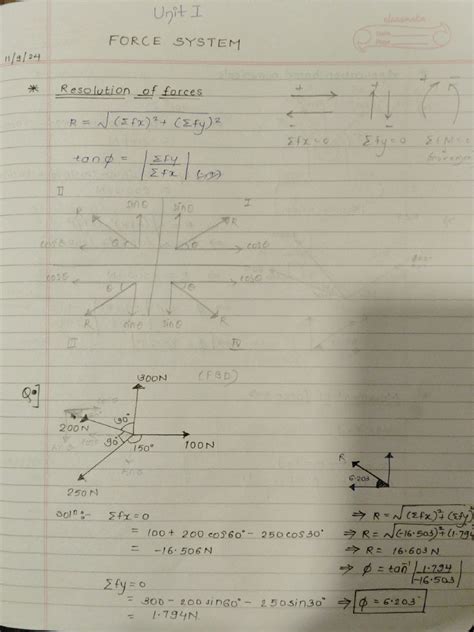 Unit I
classmate
Date
Page
FORCE SYSTEM
11/9/24
* Resolution of forces
R = √(Σfx)² + (Σfy)²
Σfx=0 Σfy=0 ΣM=0
tanϕ = |Σfy/Σfx|
II sinθ sinθ I
R R
cosθ θ θ cosθ
cosθ θ θ cosθ
R sinθ sinθ R
III IV
(FBD)
Q.] 300N
200N 90°
90° 150° 100N
250N
R 6.203
solⁿ:- Σfx=0
= 100 + 200cos60° - 250cos30°
= -16.506N
Σfy=0
= 300 - 200sin60° - 250sin30°
= 1.794N
⇒ R = √(Σfx)² + (Σfy)²
⇒ R = √(-16.503)² + (1.794
⇒ R = 16.603N
⇒ ϕ = tan⁻¹|1.794/-16.503|
⇒ ϕ = 6.203°